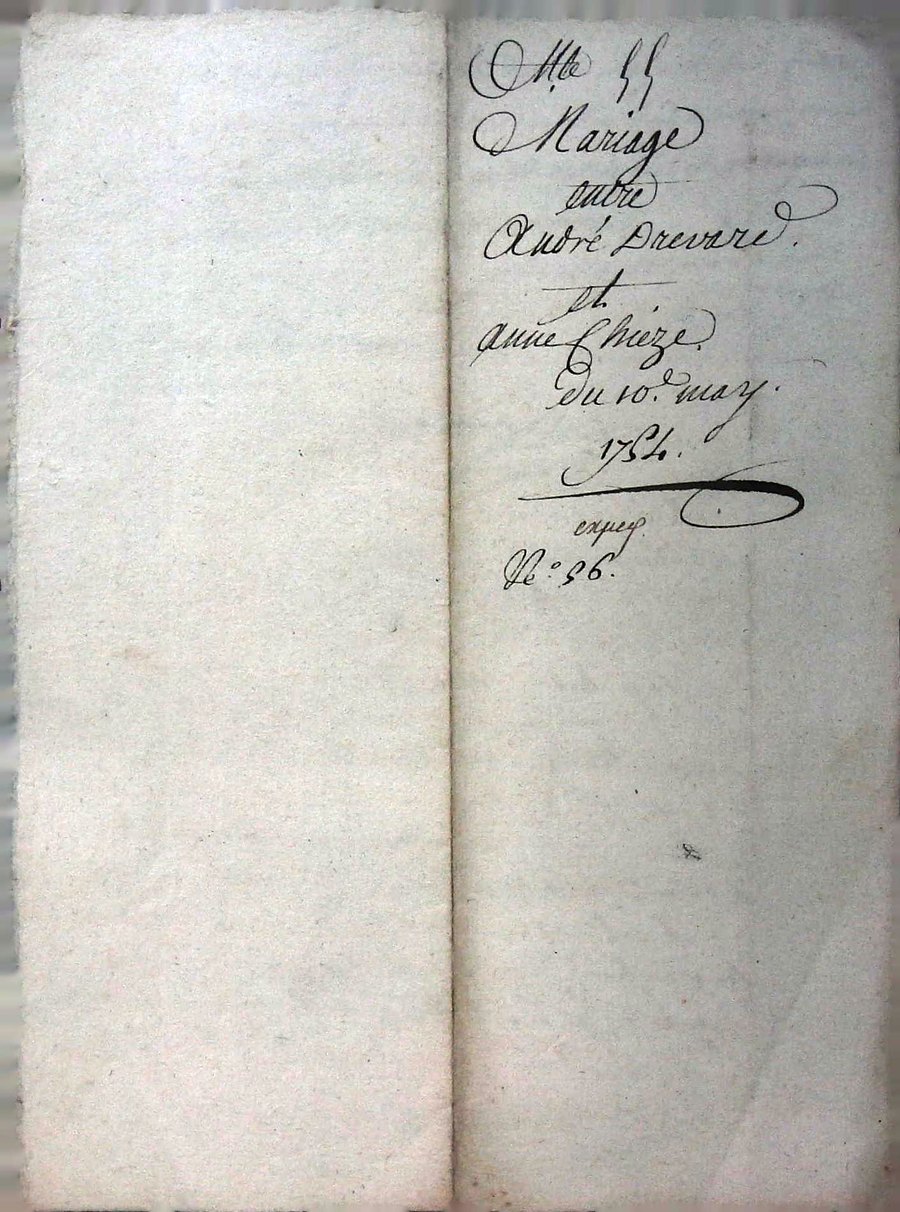 Mariage
entre
André Drevard.
et
anne Chieze.
Du 10.e may.
1754.
exped
N.o 56.